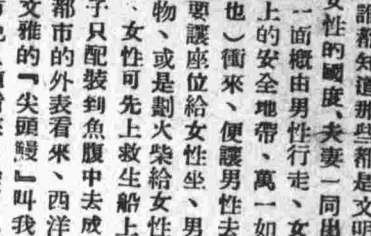 誰都知道那些都是文明
女性的國度、夫妻一同出
一面概由男性行走、女
上的安全地帶、萬一如
也）衝來、便讓男性去
要讓座位給女性坐、男
物、或是劃火柴給女性
、女性可先上救生船上
子只配裝到魚腹中去成
都市的外表看來、西洋
文雅的『尖頭鰻』叫我